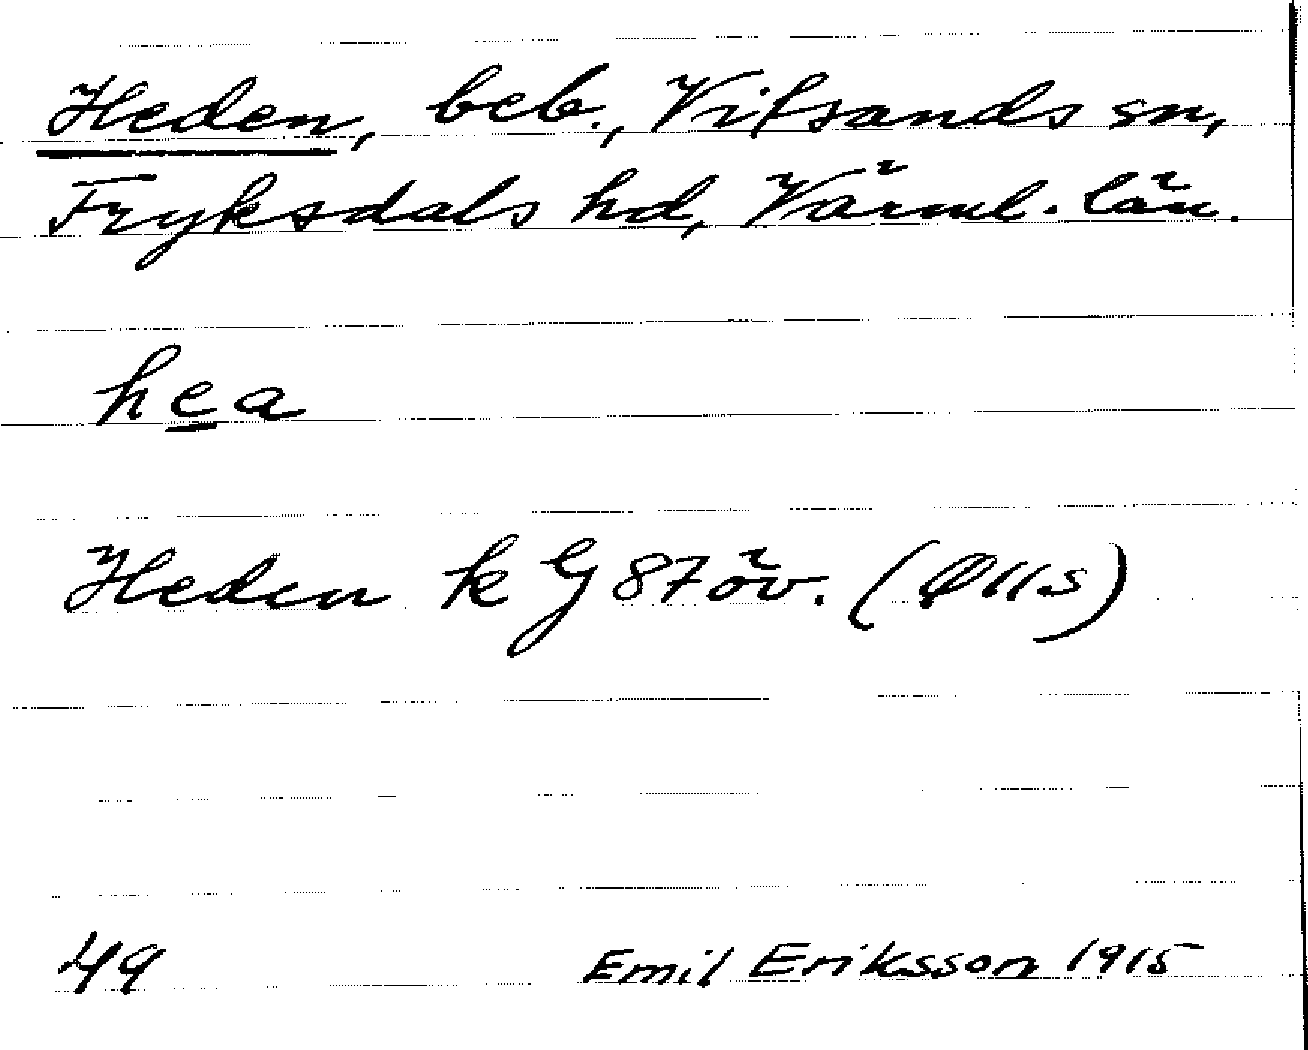 Heden, beb., Vitsands sn,
Fryksdals hd, Värml. län.
hea
Heden k G 87 öv.
49 Emil Eriksson 1915